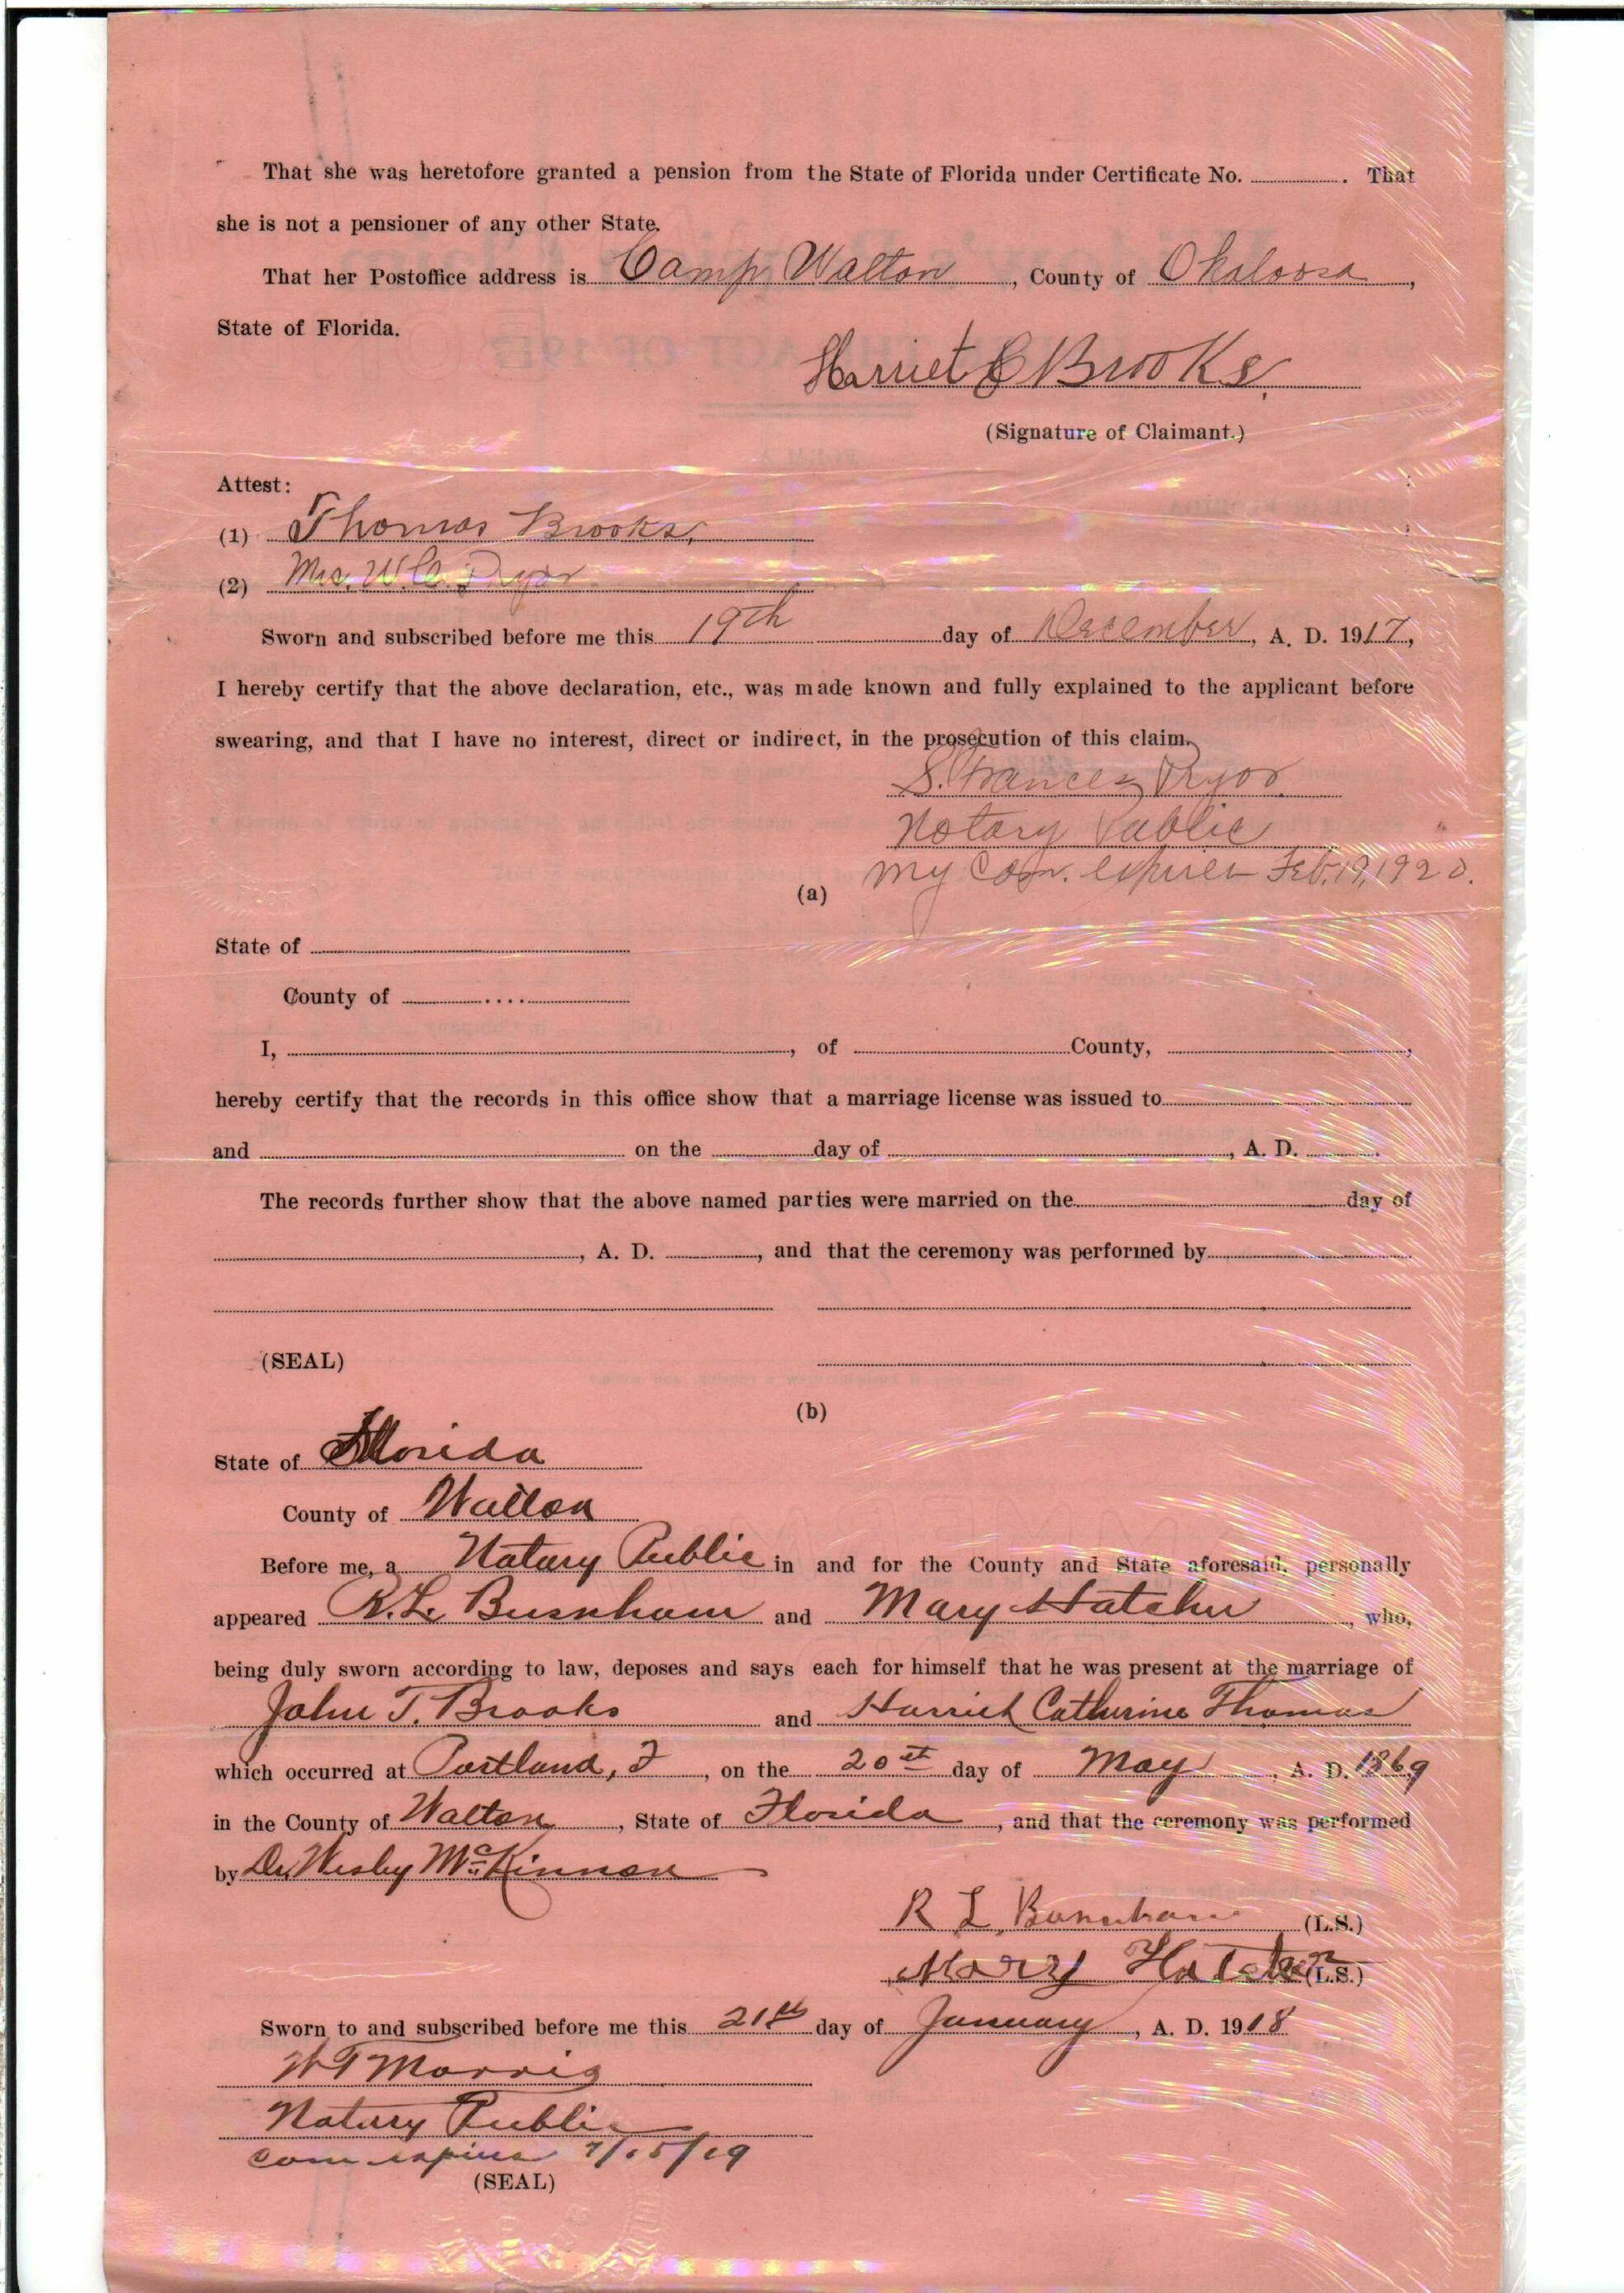 That she was heretofore granted a pension from the State of Florida under Certificate No. . That
she is not a pensioner of any other State.
That her Postoffice address is Camp Walton, County of Okaloosa,
State of Florida.
Harriet C Brooks.
(Signature of Claimant.)
Attest:
(1) Thomas Brooks,
(2) Mrs. W.C. Pryor
Sworn and subscribed before me this 19th day of December, A. D. 1917,
I hereby certify that the above declaration, etc., was made known and fully explained to the applicant before
swearing, and that I have no interest, direct or indirect, in the prosecution of this claim.
S. Frances Pryor
Notary Public
My Com. expires Feb. 19, 1920.
(a)
State of
County of
I, , of County, ,
hereby certify that the records in this office show that a marriage license was issued to
and on the day of , A. D. .
The records further show that the above named parties were married on the day of
, A. D. , and that the ceremony was performed by
(SEAL)
(b)
State of Florida
County of Walton
Before me, a Notary Public in and for the County and State aforesaid, personally
appeared R. L. Burnham and Mary Hatcher, who,
being duly sworn according to law, deposes and says each for himself that he was present at the marriage of
John T. Brooks and Harriet Catherine Thomas
which occurred at Portland, F, on the 20st day of May, A. D. 1869
in the County of Walton, State of Florida, and that the ceremony was performed
by Dr. Wesley McKinnon
R L Burnham (L.S.)
Mary Hatcher (L.S.)
Sworn to and subscribed before me this 21st day of January, A. D. 1918
W T Morris
Notary Public
Com expires 7/15/19
(SEAL)